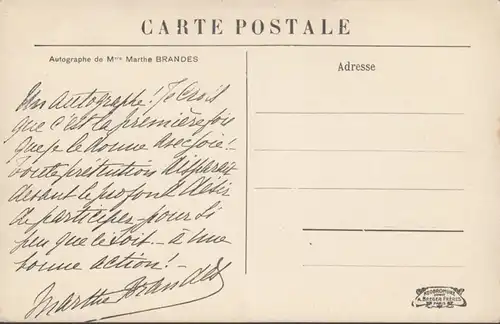 CARTE POSTALE
Autographe de Mme Marthe BRANDES
Adresse
Un autographe! Je crois
que c'est la première fois
que je le donne avec joie!
Toute prétention disparait
devant le profond désir
de participer pour si
peu que ce soit - à une
bonne action! -
Marthe Brandès
A. BERGER FRÈRES
PARIS